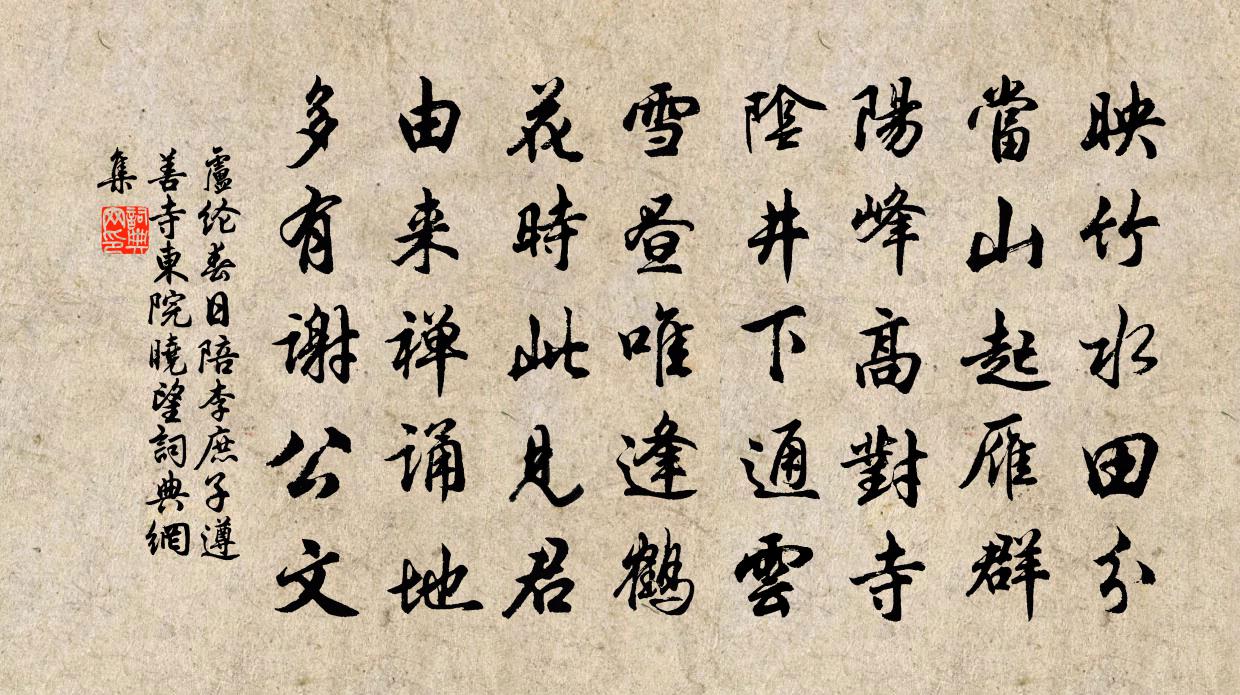 映竹水田分
當山起雁群
陽峰高對寺
陰井下通雲
雪昼唯逢鶴
花時此見君
由来禅誦地
多有谢公文
盧纶春日陪李庶子遵
善寺東院曉望詞典網
集
詞典网印